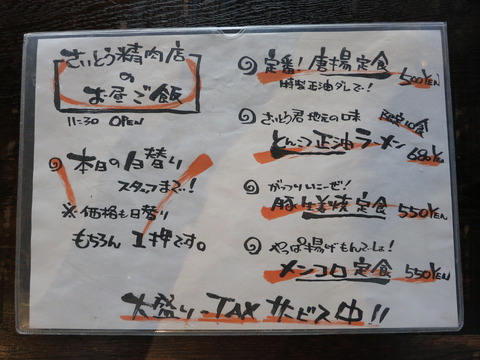 さいとう精肉店
の
お昼ご飯
11:30 OPEN
本日の日替り
スタッフまで、!
※価格も日替り
もちろん 工押です。
定番! 唐揚定食 500YEN
特製正油ダレで!
さいとう君 地元の味 限定10食
とんこつ正油ラーメン 680YEN
がっつりいこーぜ!
豚生姜焼定食 550YEN
やっぱ揚げもんでしょ!
メンコロ定食 550YEN
大盛り・TAX サービス中!!